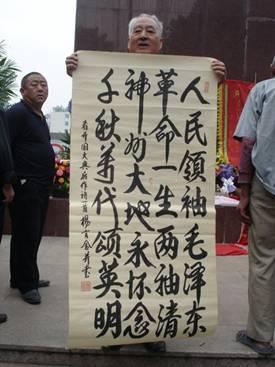 人民領袖毛泽东
革命一生两袖清
神州大地永怀念
千秋萬代颂英明